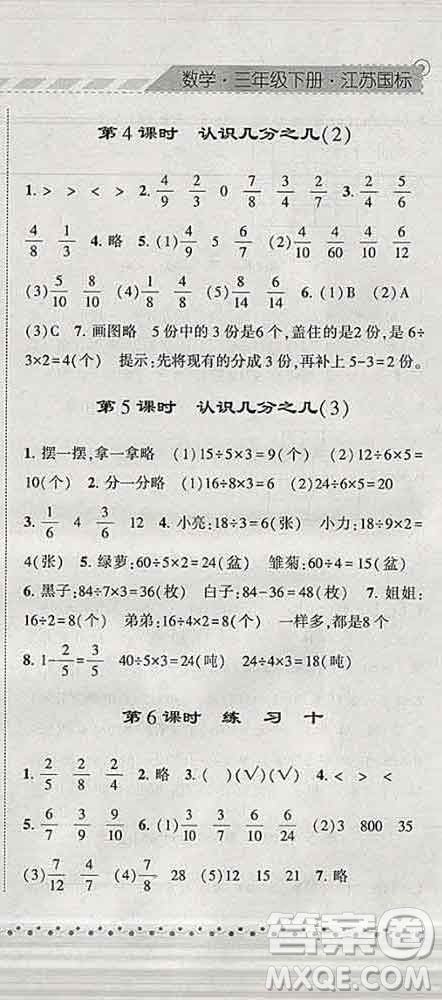 数学·三年级下册·江苏国标
第4课时 认识几分之几(2)
1. > > < > 2. 4/9 2/3 0 7/8 3/4 3/7 3. 2/4 5/6
4/8 1/3 4. 略 5. (1)4/9 5 6/7 (2)10/40 40/60
(3)5/10 8/10 (4)4/8 1/4 (5)8/14 6/14 6. (1)B (2)A
(3)C 7. 画图略 5份中的3份是6个,盖住的是2份,是6÷
3×2=4(个) 提示:先将现有的分成3份,再补上5-3=2份。
第5课时 认识几分之几(3)
1. 摆一摆,拿一拿略 (1)15÷5×3=9(个) (2)12÷6×5=
10(个) 2. 分一分略 (1)24÷8×3=9 (2)24÷6×5=20
3. 1/6 4 3/6 12 4. 小亮:18÷3=6(张) 小力:18÷9×2=
4(张) 5. 绿萝:60÷5×2=24(盆) 雏菊:60÷5=12(盆)
6. 黑子:84÷7×3=36(枚) 白子:84÷7×4=48(枚) 7. 姐姐:
16÷2=8(个) 弟弟:16÷4×2=8(个) 一样多,都是8个
8. 1-2/5=3/5 40÷5×3=24(吨) 24÷4×3=18(吨)
第6课时 练习十
1. 2/5 2/8 2/4 2. 略 3. ( )(√)(√) 4. < > <
5. 6/7 3/9 9/10 6. (1)3/7 3/10 6/6 6/24 (2)3 800 35
(3)7/12 4/7 (4)7/8 28 (5)12 15 21 7. 略
答案圈
MXQE.COM